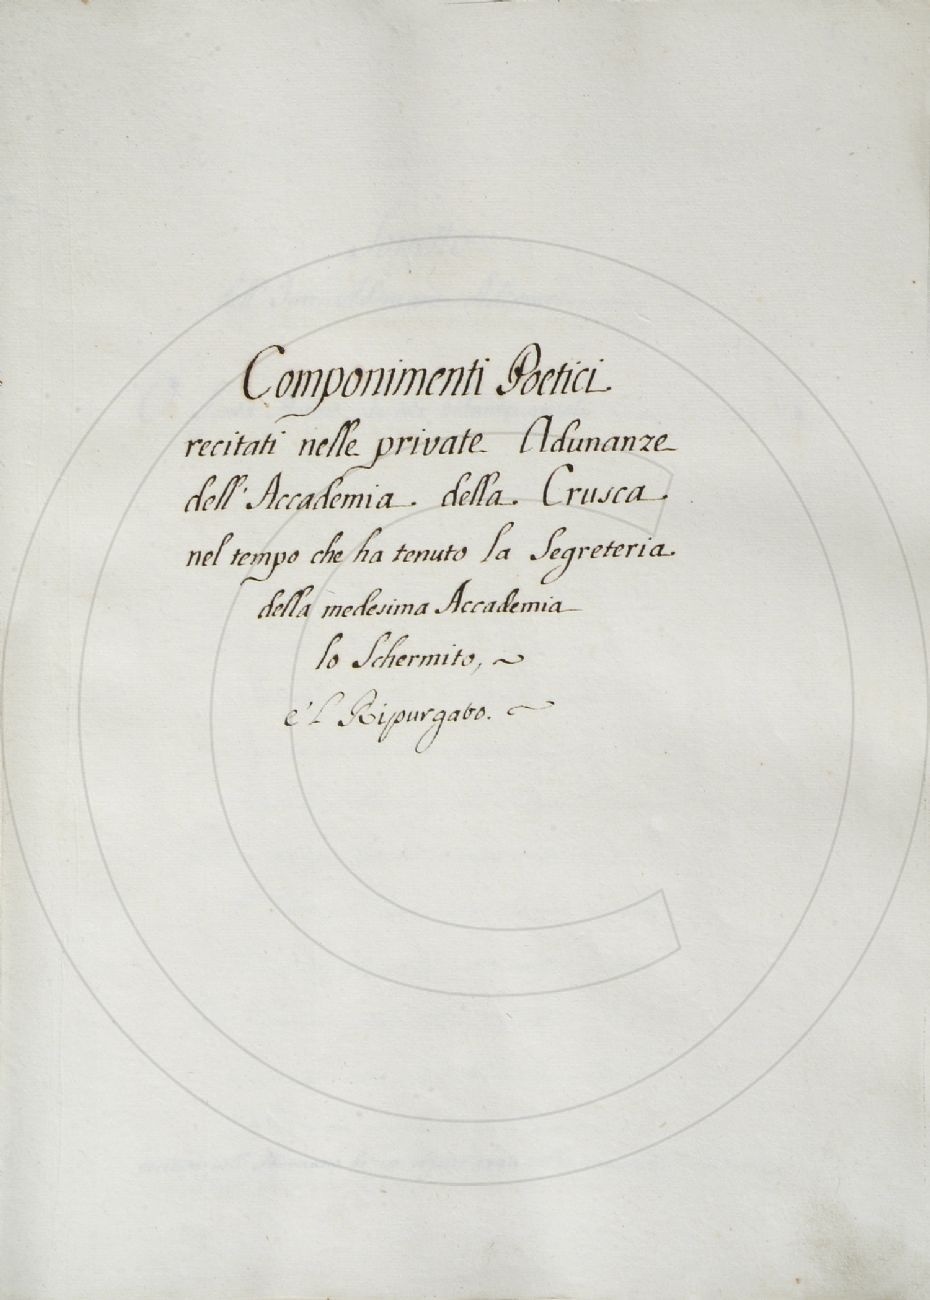 Componimenti Poetici
recitati nelle private Adunanze
dell'Accademia della Crusca
nel tempo che ha tenuto la Segreteria
della medesima Accademia
lo Schermito,
e'l Ripurgato.